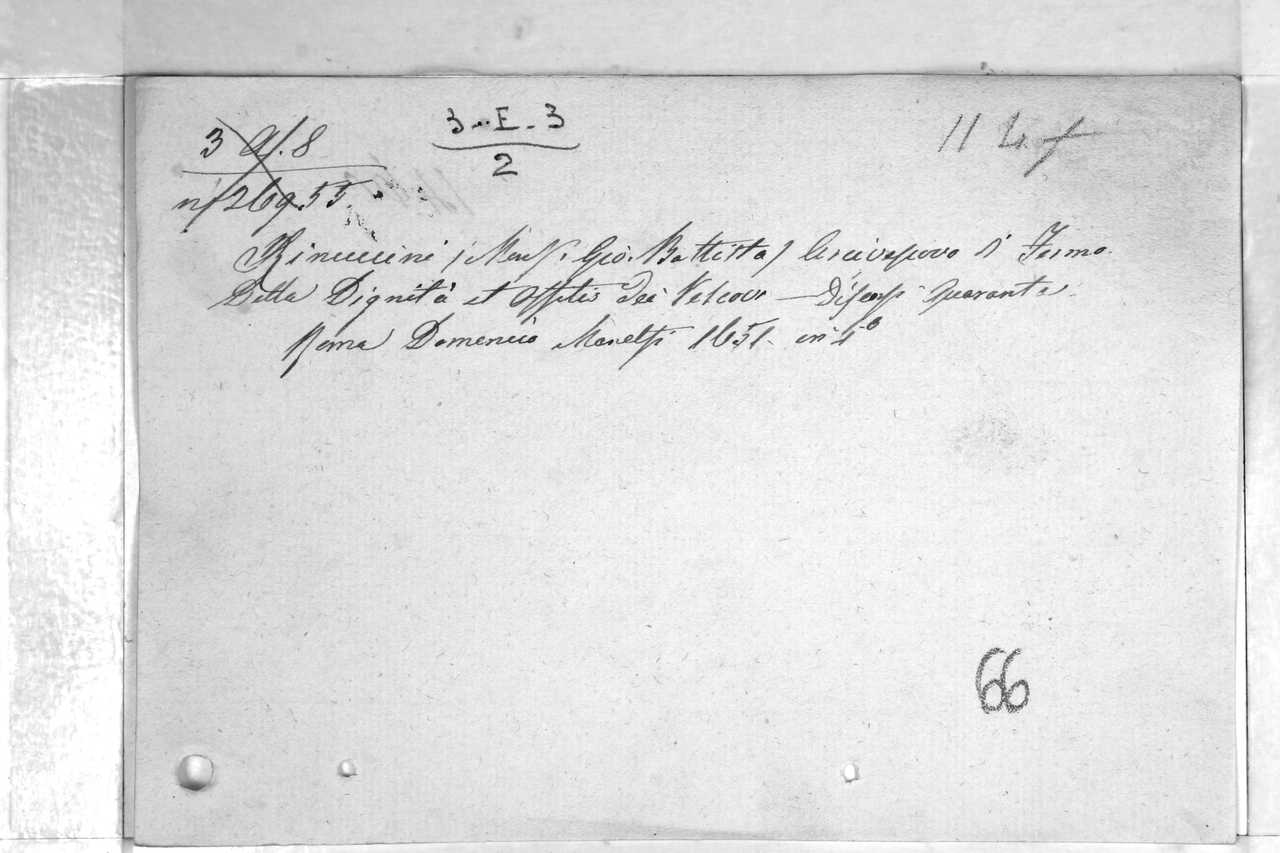 3 9/. 8
3-E-3
2
11 4
n/ 269.55.
Rinuccini / Mons. Gio. Battista / Arcivescovo di Fermo.
Della Dignità et Offitio dei Vescovi — Discorsi Quaranta.
Roma Domenico Manelfi 1651. in 4°
66